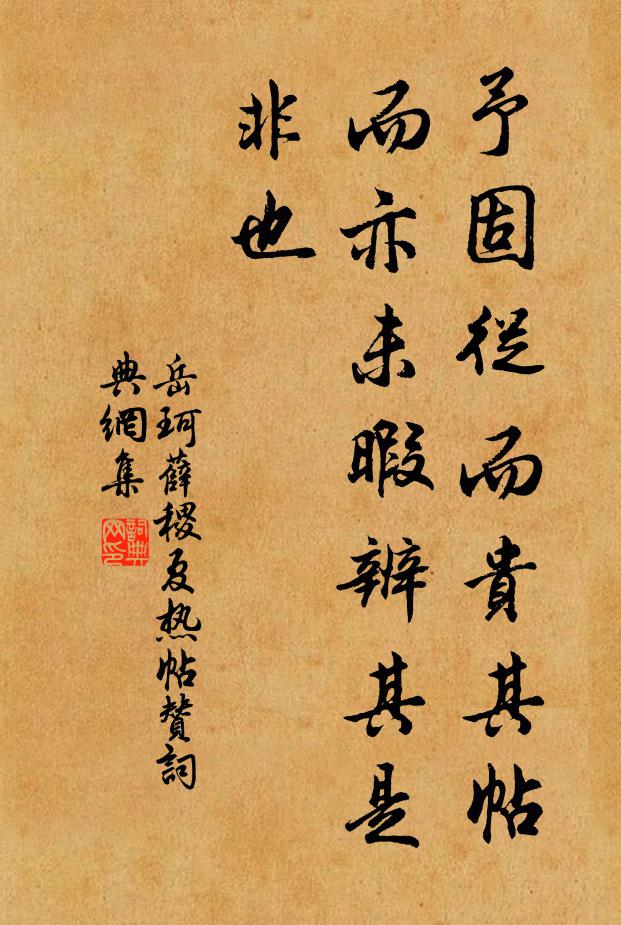 予固從而貴其帖
而亦未暇辨其是
非也
岳珂薛稷夏热帖贊詞
典網集
詞典网印